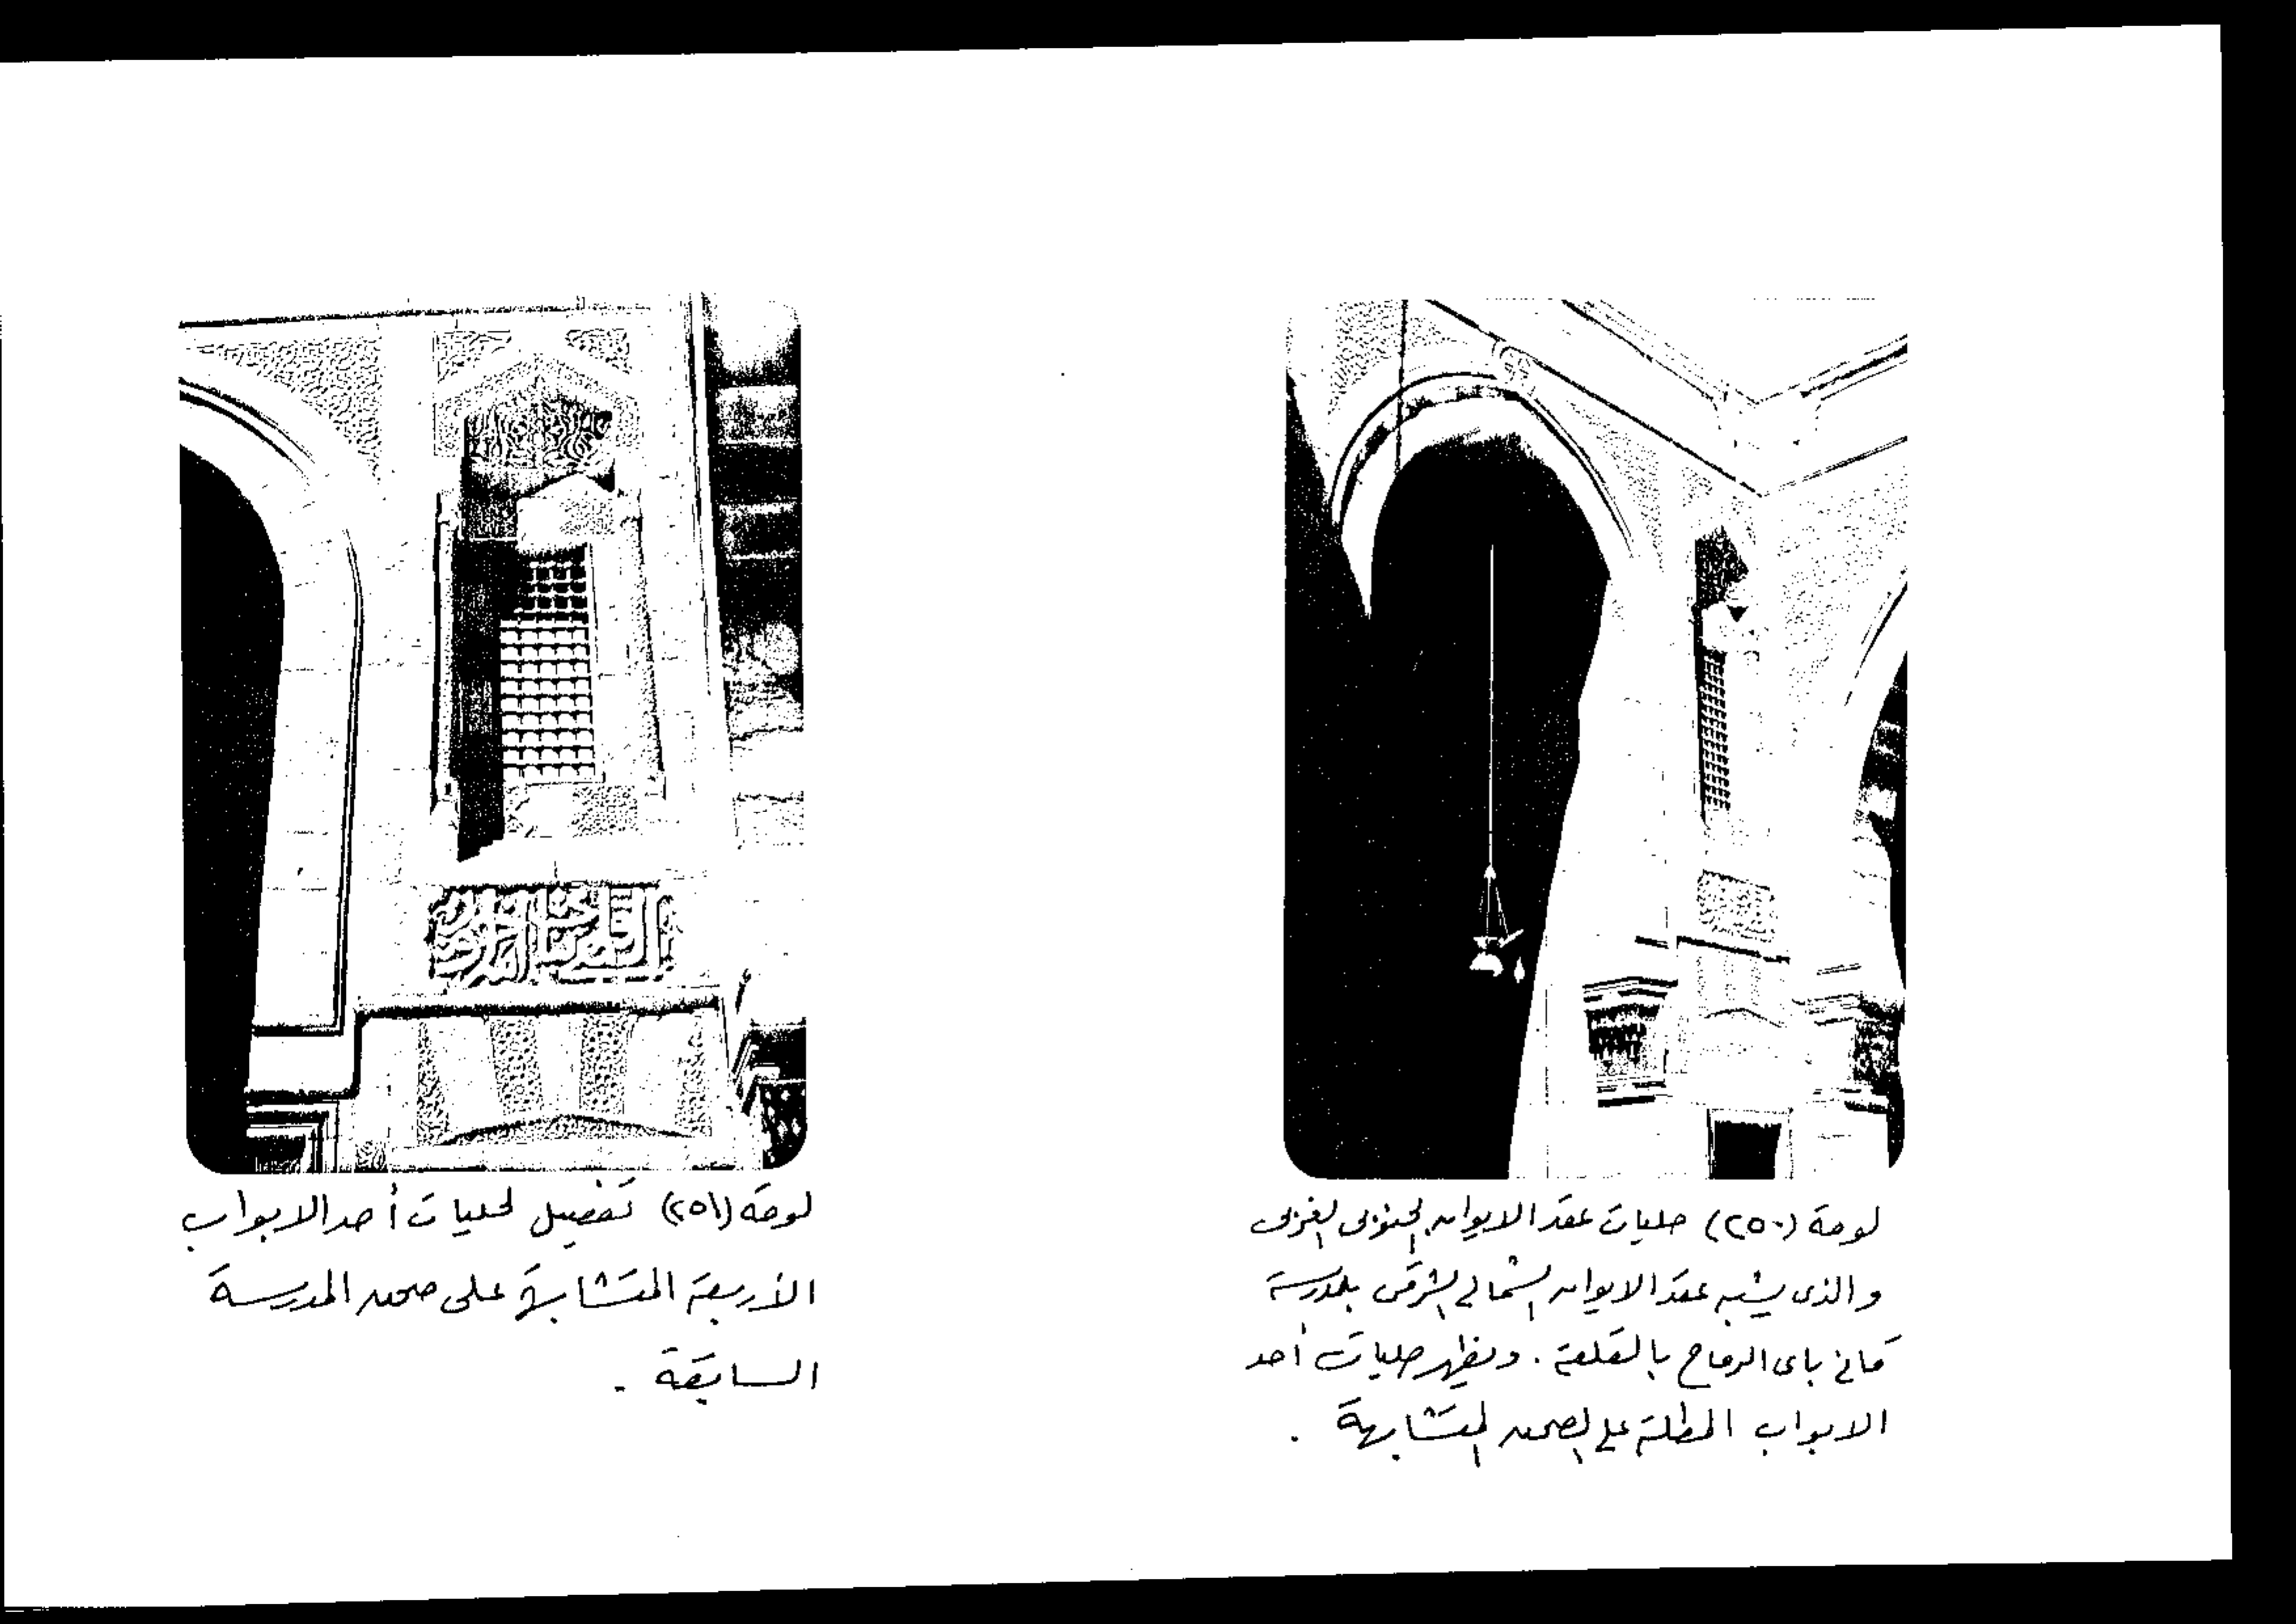 لوحة (٢٥٠) حليات عقد الايوان الجنوبى الغربى
والذى يشبه عقد الايوان الشمالى الشرقى بمدرسة
قانى باى الرماح بالقلعة . ويظهر حليات أحد
الابواب المطلة على الصحن المتشابهة .
لوحة (٢٥١) تفصيل لحليات أحد الابواب
الأربعة المتشابهة على صحن المدرسة
السابقة .